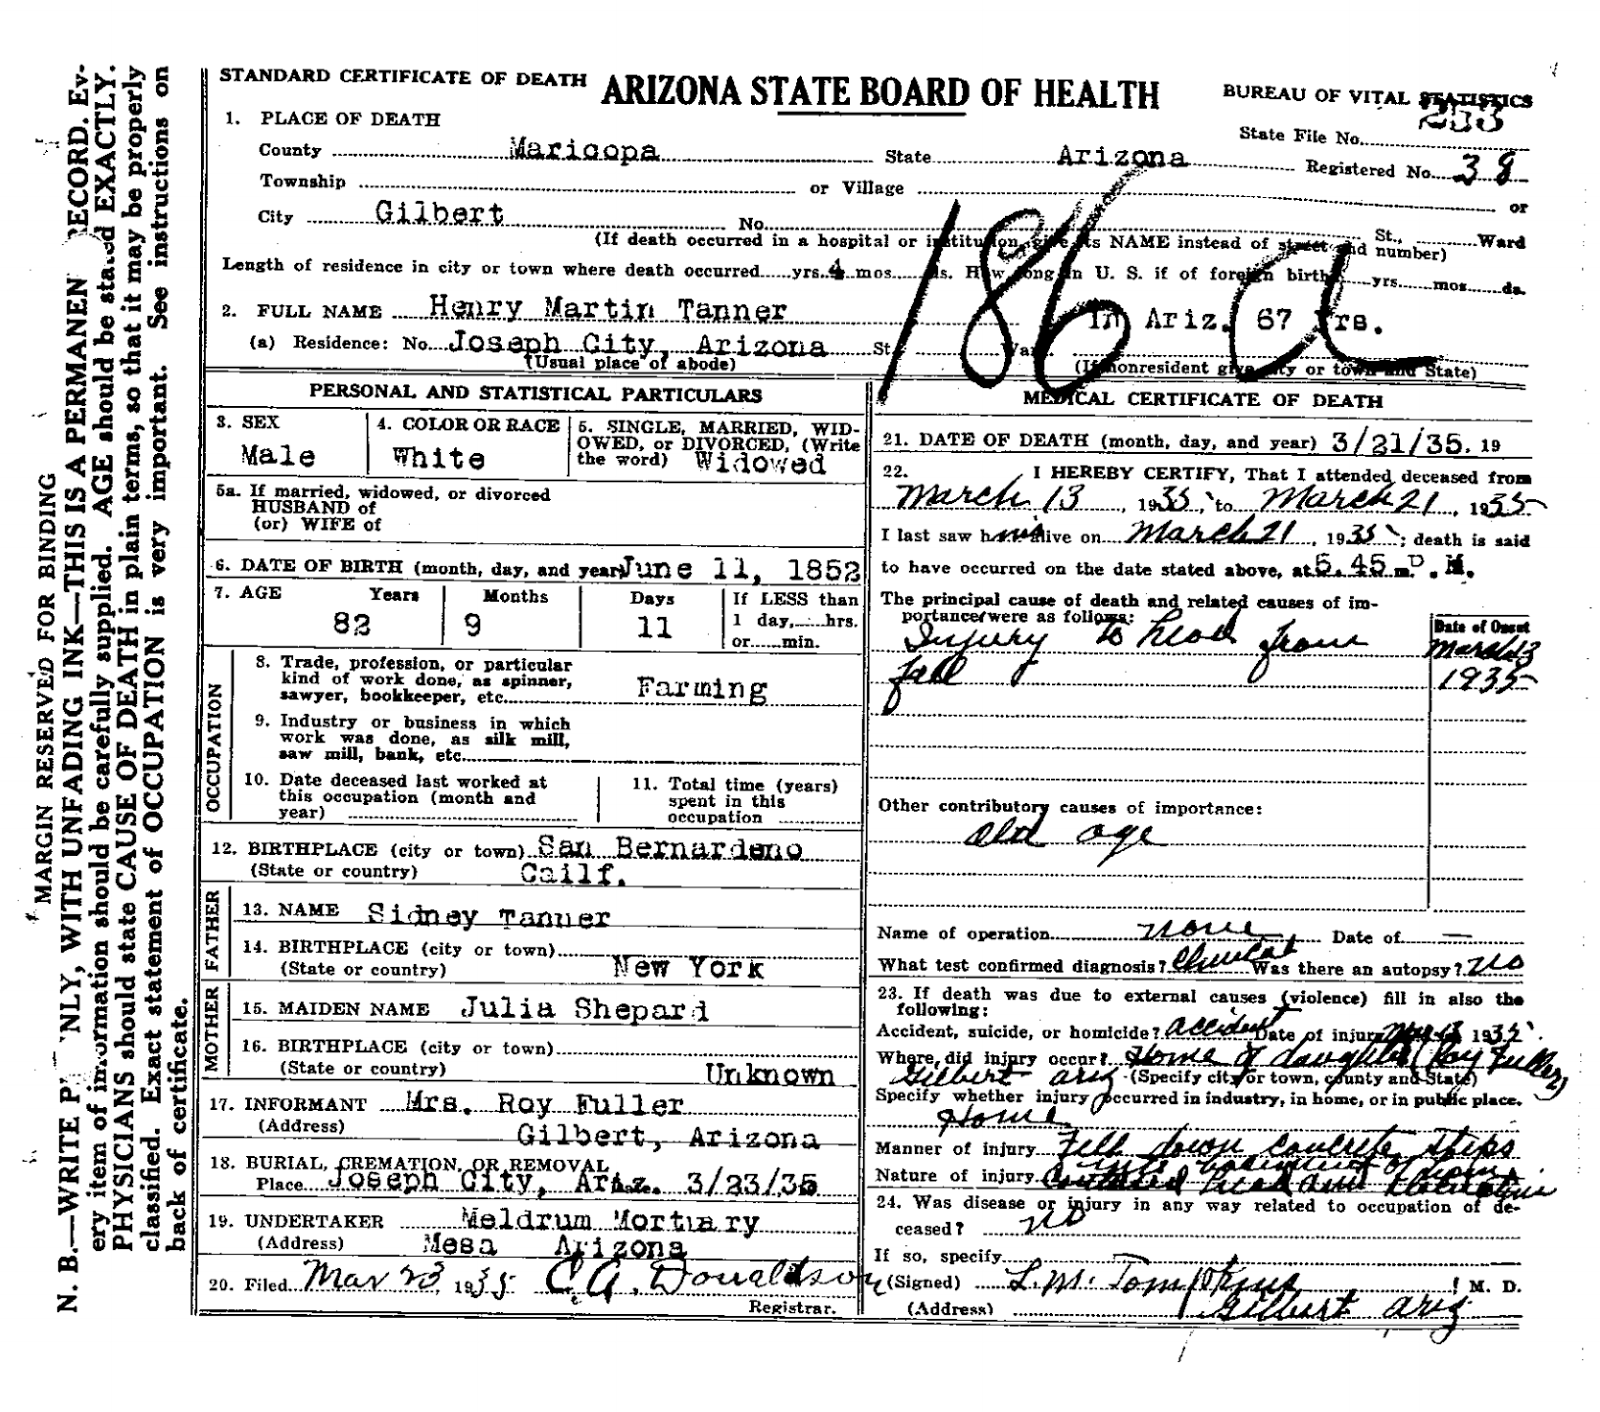 STANDARD CERTIFICATE OF DEATH ARIZONA STATE BOARD OF HEALTH BUREAU OF VITAL STATISTICS
1. PLACE OF DEATH
State File No. 233
County Maricopa State Arizona Registered No. 38
Township or Village or
City Gilbert No. St., Ward
(If death occurred in a hospital or institution, give its NAME instead of street and number)
Length of residence in city or town where death occurred yrs. 4 mos. ds. How long in U. S. if of foreign birth yrs. mos. ds.
2. FULL NAME Henry Martin Tanner In Ariz. 67 Yrs.
(a) Residence: No. Joseph City, Arizona St. Ward
(Usual place of abode) (If nonresident give city or town and State)
186 a
PERSONAL AND STATISTICAL PARTICULARS
3. SEX
Male
4. COLOR OR RACE
White
5. SINGLE, MARRIED, WID-
OWED, or DIVORCED, (Write
the word) Widowed
5a. If married, widowed, or divorced
HUSBAND of
(or) WIFE of
6. DATE OF BIRTH (month, day, and year) June 11, 1852
7. AGE Years Months Days If LESS than
82 9 11 1 day, hrs.
or min.
OCCUPATION
8. Trade, profession, or particular
kind of work done, as spinner,
sawyer, bookkeeper, etc. Farming
9. Industry or business in which
work was done, as silk mill,
saw mill, bank, etc.
10. Date deceased last worked at
this occupation (month and
year)
11. Total time (years)
spent in this
occupation
12. BIRTHPLACE (city or town) San Bernardeno
(State or country) Cailf.
FATHER
13. NAME Sidney Tanner
14. BIRTHPLACE (city or town)
(State or country) New York
MOTHER
15. MAIDEN NAME Julia Shepard
16. BIRTHPLACE (city or town)
(State or country) Unknown
17. INFORMANT Mrs. Roy Fuller
(Address) Gilbert, Arizona
18. BURIAL, CREMATION, OR REMOVAL
Place Joseph City, Ariz. 3/23/35
19. UNDERTAKER Meldrum Mortuary
(Address) Mesa Arizona
20. Filed Mar 23, 1935 C. A. Donaldson
Registrar.
MEDICAL CERTIFICATE OF DEATH
21. DATE OF DEATH (month, day, and year) 3/21/35. 19
22. I HEREBY CERTIFY, That I attended deceased from
March 13, 1935, to March 21, 1935
I last saw him alive on March 21, 1935; death is said
to have occurred on the date stated above, at 5.45 m. P. M.
The principal cause of death and related causes of im-
portance were as follows:
Date of Onset
Injury to head from March 13
fall 1935
Other contributory causes of importance:
old age
Name of operation none Date of —
What test confirmed diagnosis? Clinical Was there an autopsy? no
23. If death was due to external causes (violence) fill in also the
following:
Accident, suicide, or homicide? accident Date of injury Mar 13 1935
Where did injury occur? Home of daughter (Roy Fuller)
Gilbert Ariz (Specify city or town, county and State)
Specify whether injury occurred in industry, in home, or in public place.
Home
Manner of injury Fell down concrete steps
into basement of home
Nature of injury Contused head and
24. Was disease or injury in any way related to occupation of de-
ceased? no
If so, specify
(Signed) L. M. Tompkins M. D.
(Address) Gilbert Ariz
MARGIN RESERVED FOR BINDING
N. B.—WRITE NLY, WITH UNFADING INK—THIS IS A PERMANEN RECORD. Ev-
ery item of information should be carefully supplied. AGE should be stated EXACTLY.
PHYSICIANS should state CAUSE OF DEATH in plain terms, so that it may be properly
classified. Exact statement of OCCUPATION is very important. See instructions on
back of certificate.